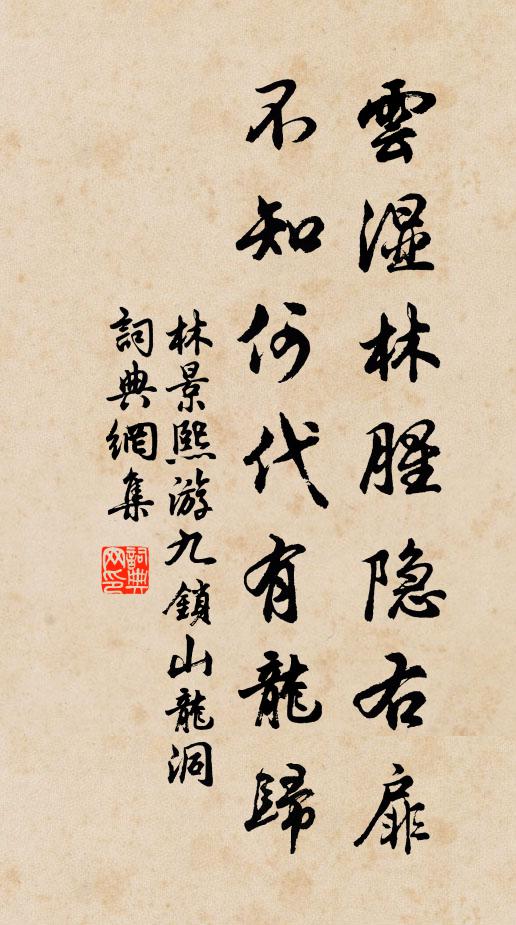 雲湿林腥隐右扉
不知何代有龍歸
林景熙游九鎖山龍洞
詞典網集
詞典
网印